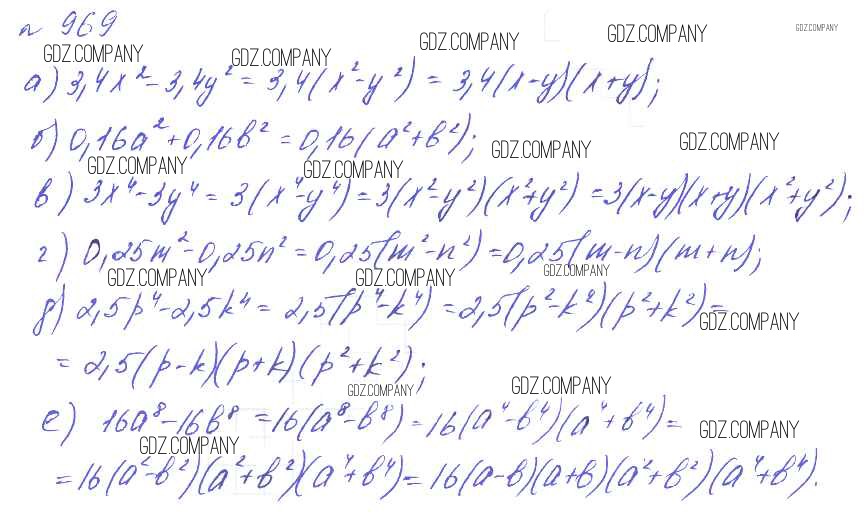 № 969
GDZ.COMPANY GDZ.COMPANY GDZ.COMPANY GDZ.COMPANY GDZ.COMPANY
а) 3,4x² - 3,4y² = 3,4(x² - y²) = 3,4(x-y)(x+y);
б) 0,16a² + 0,16b² = 0,16(a² + b²);
GDZ.COMPANY GDZ.COMPANY
GDZ.COMPANY GDZ.COMPANY
в) 3x⁴ - 3y⁴ = 3(x⁴ - y⁴) = 3(x² - y²)(x² + y²) = 3(x-y)(x+y)(x² + y²);
г) 0,25m² - 0,25n² = 0,25(m² - n²) = 0,25(m-n)(m+n);
GDZ.COMPANY GDZ.COMPANY GDZ.COMPANY
д) 2,5p⁴ - 2,5k⁴ = 2,5(p⁴ - k⁴) = 2,5(p² - k²)(p² + k²) =
GDZ.COMPANY
= 2,5(p-k)(p+k)(p² + k²);
GDZ.COMPANY GDZ.COMPANY
е) 16a⁸ - 16b⁸ = 16(a⁸ - b⁸) = 16(a⁴ - b⁴)(a⁴ + b⁴) =
GDZ.COMPANY GDZ.COMPANY
= 16(a² - b²)(a² + b²)(a⁴ + b⁴) = 16(a-b)(a+b)(a² + b²)(a⁴ + b⁴).